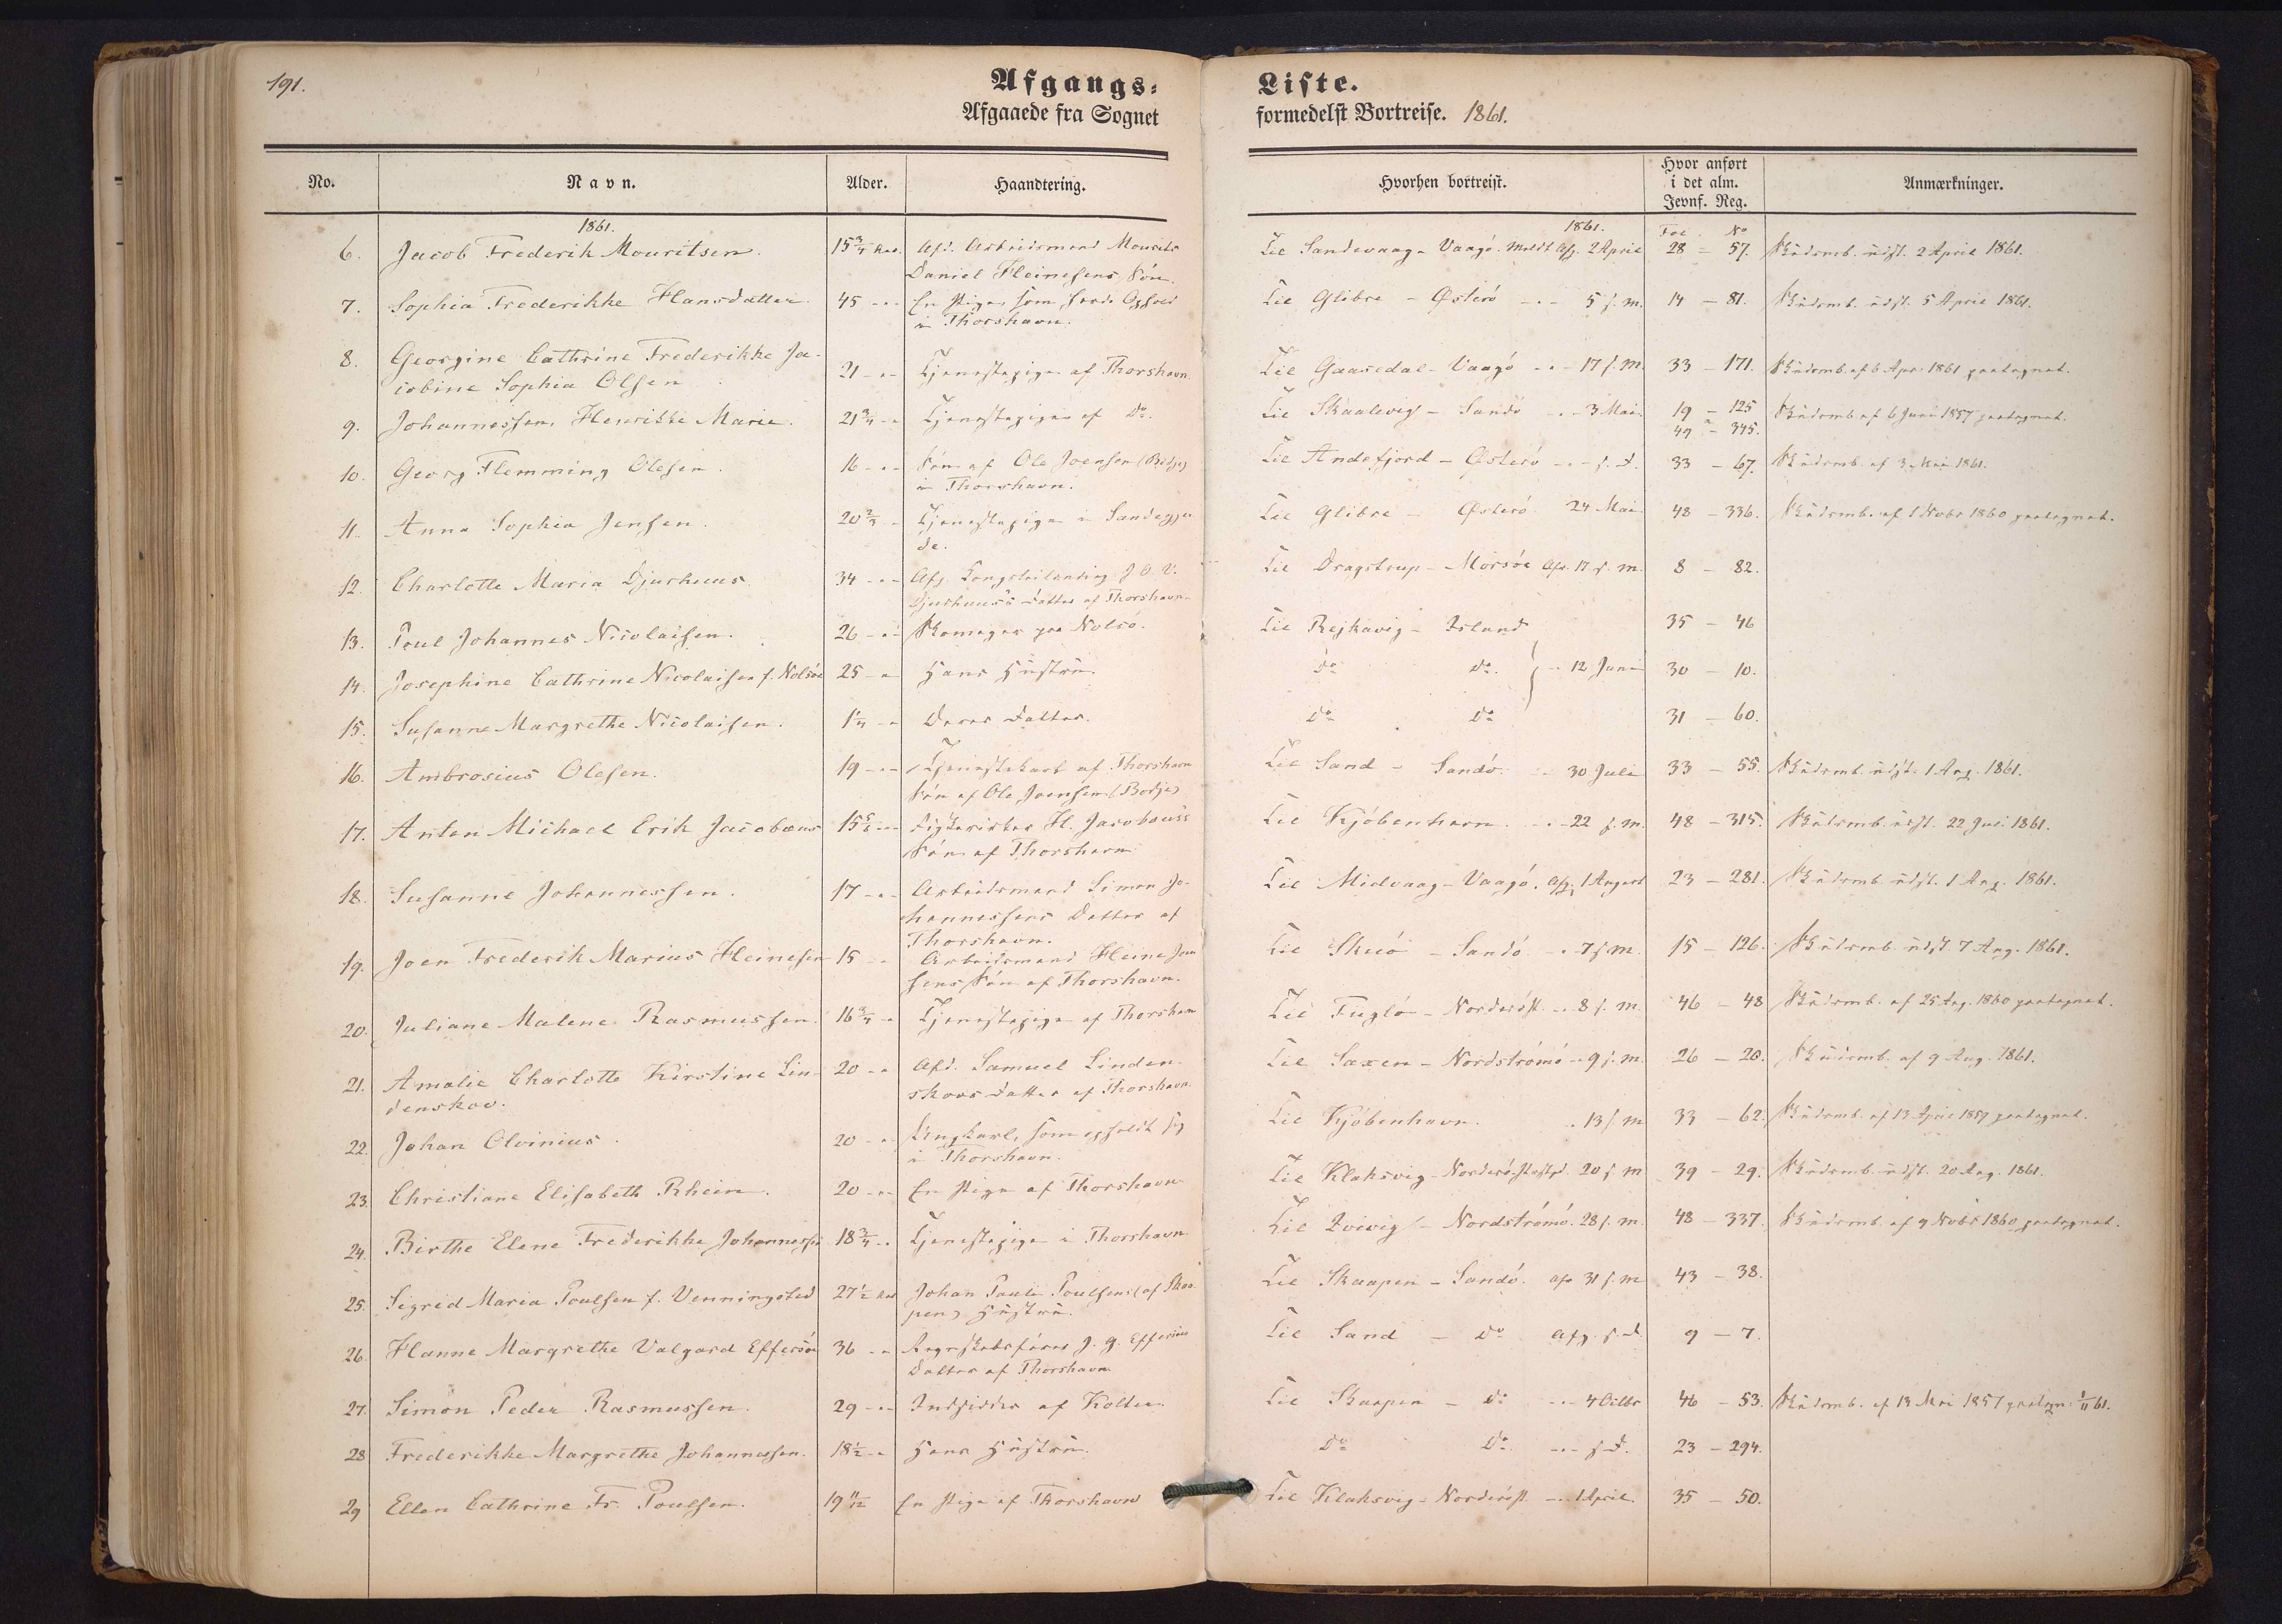 191.
Afgangs- Liste.
Afgaaede fra Sognet formedelst Bortreise. 1861.
No. Navn. Alder. Haandtering. Hvorhen bortreist. Hvor anført i det alm. Jevnf. Reg. Anmærkninger.
1861. 1861. Fol. No
6. Jacob Frederik Mouritsen. 15 3/4 Aar. Afd. Arbeidsmand Mourits Til Sandevaag - Vaagö. Meldt Afg. 2 April 28 - 57. Skudsmb. udst. 2 April 1861.
Daniel Heinesens Søn.
7. Sophia Frederikke Hansdatter 45 - - En Pige, som havde Ophold Til Glibre - Østerö - - 5 s. m. 14 - 81. Skudsmb. udst. 5 April 1861.
i Thorshavn.
8. Georgine Cathrine Frederikke Ja-
cobine Sophia Olsen 21 - - Tjenestepige af Thorshavn Til Gaasedal - Vaagö - - 17 s. m. 33 - 171. Skudsmb. af 6 Apr. 1861 paategnet.
9. Johannessen, Henrikke Marie. 21 3/4 - - Tjenestepige af Do. Til Skaalevig - Sandö - - 3 Mai. 19 - 125 Skudsmb. af 6 Juni 1857 paategnet.
49 - 345.
10. Georg Flemming Olesen. 16 - - Søn af Ole Joensen i Thorshavn. Til Andefjord - Østerö - - s. D. 33 - 67. Skudsmb. af 3 Mai 1861.
11. Anna Sophia Jensen. 20 2/3 - Tjenestepige i Sandegjer- Til Glibre - Østerö 24 Mai. 48 - 336. Skudsmb. af 1 Novbr 1860 paategnet.
de.
12. Charlotte Maria Djurhuus. 34 - - J. O. V. Til Dragstrup - Morsöe Afr. 17 s. m. 8 - 82.
Djurhuus's Datter af Thorshavn.
13. Poul Johannes Nicolaisen. 26 - - Skomager paa Nolsö. Til Rejkavig - Island 35 - 46
14. Josephine Cathrine Nicolaisen f. Nolsöe 25 - - Hans Hustru. Do Do. - - 12 Juni 30 - 10.
15. Susanne Margrethe Nicolaisen. 1 1/4 - - Deres Datter. Do Do 31 - 60.
16. Ambrosius Olesen. 19 - - Tjenestekarl af Thorshavn Til Sand - Sandö - - 30 Juli 33 - 55. Skudsmb. udst. 1 Aug. 1861.
Søn af Ole Joensen
17. Anton Michael Erik Jacobæus 15 5/6 - - H. Jacobæus's Til Kjöbenhavn. - - 22 s. m. 48 - 315. Skudsmb. udst. 22 Jul. 1861.
Søn af Thorshavn
18. Susanne Johannessen. 17 - - Arbeidsmand Simon Jo- Til Midvaag - Vaagö. Afg. 1 August 23 - 281. Skudsmb. udst. 1 Aug. 1861.
hannessens Datter af
Thorshavn.
19. Joen Frederik Marius Heinesen 15 - - Arbeidsmand Heine Joen Til Skuö - Sandö - - 7 s. m. 15 - 126. Skudsmb. udst 7 Aug. 1861.
sens Søn af Thorshavn.
20. Juliane Malene Rasmussen. 16 3/4 - - Tjenestepige af Thorshavn Til Fuglö - Norderöst. - - 8 s. m. 46 - 48 Skudsmb. af 25 Aug. 1860 paategnet.
21. Amalie Charlotte Kirstine Lin- 20 - - Afd. Samuel Linden- Til Saxen - Nordströmö - 9 s. m. 26 - 20. Skudsmb. af 9 Aug. 1861.
denskov. skovs Datter af Thorshavn.
22. Johan Olvinius. 20 - - Ungkarl, som opholdt sig Til Kjöbenhavn. - 13 s. m 33 - 62. Skudsmb. af 13 April 1857 paategnet.
i Thorshavn.
23. Christiane Elisabeth Rhein. 20 - - En Pige af Thorshavn Til Klaksvig - 20 s. m 39 - 29. Skudsmb. udst. 20 Aug. 1861.
24. Birthe Elene Frederikke Johannessen 18 3/4 - - Tjenestepige i Thorshavn Til Qvivig - Nordströmö. 28 s. m. 48 - 337. Skudsmb. af 9 Novbr 1860 paategnet.
25. Sigrid Maria Poulsen f. Venningsted 27 1/2 Aar Johan Pauli Poulsens (af Skaa- Til Skaapen - Sandö. Afr 31 s. m 43 - 38.
pen) Hustru.
26. Hanne Margrethe Valgard Effersöe 36 - - J. G. Effersöes Til Sand - Do Afg. s. D. 9 - 7.
Datter af Thorshavn
27. Simon Peder Rasmussen. 29 - - Indsidder af Kolter. Til Skaapen - Do - - 4 Octbr 46 - 53. Skudsmb. af 13 Mai 1857 paategn. 1/11 61.
28 Frederikke Margrethe Johannessen. 18 1/2 - - Hans Hustru. Do Do. - - s. D. 23 - 294.
29 Ellen Cathrine Fr. Poulsen. 19 11/12 En Pige af Thorshavn Til Klaksvig - Norderöst. - - 1 April. 35 - 50.